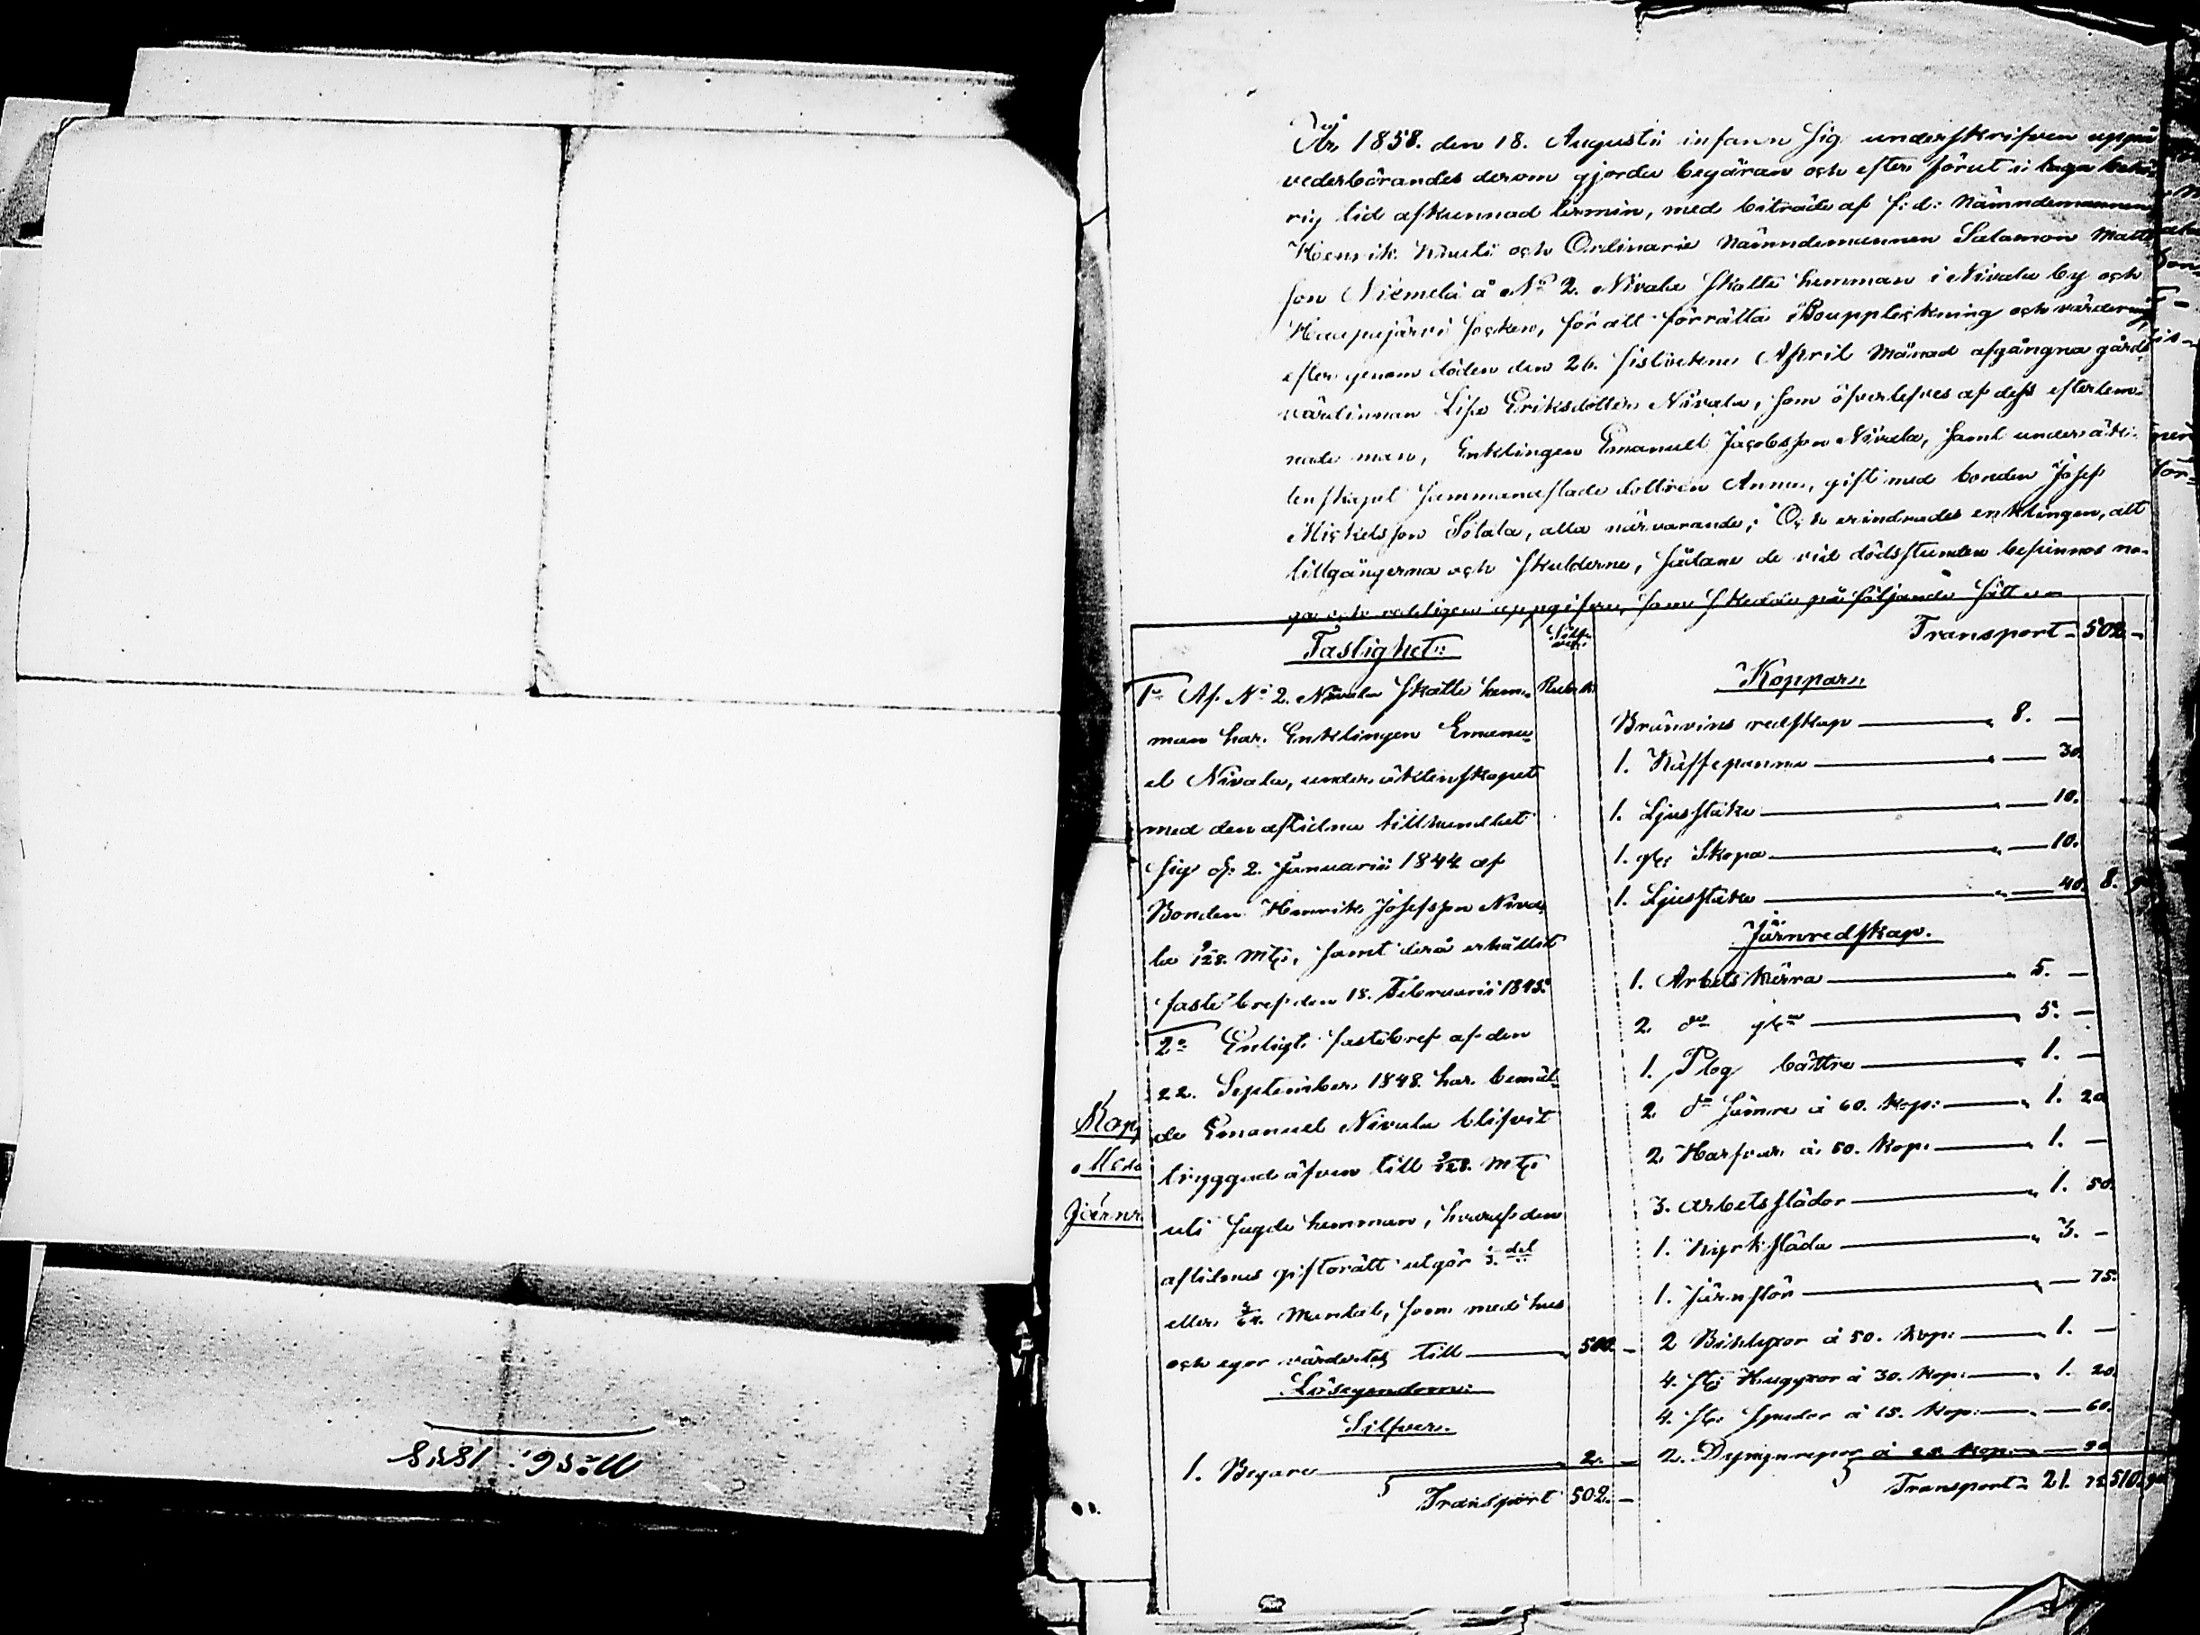 År 1858. den 18. Augusti infann sig underskrifven uppå
vederbörandes derom gjorda begäran och efter förut i laga behö-
rig tid afkunnad termin, med biträde af f: d: Nämndemannen
Henrik och Ordinarie Nämndemannen Salamon Matts
son Niemelä å No 2. Nivala skatte hemman i Nivala by och
Haapajärvi socken, för att förrätta Bouppteckning och värdering
efter genom döden den 26. sistvekne April Månad afgångna gårds
värdinnan Lisa Eriksdotter Nivala, som öfverlefves af dess efterlem-
nade man, Enklingen Emanuel Jacobsson Nivala, samt under äk-
tenskapet sammanaflade dottren Anna, gift med bonden Josef
Mickelsson Sölala, alla närvarande; Och erindrades enklingen, att
tillgångerna och skulderne, sådane de vid dödsstunden befunnos no-
ga och redeligen uppgifva, som skedde på följande sätt
Fastighet:
1o Af No 2. Nivala skatte hem- Rub. k.
man har Enklingen Emanu-
el Nivala, under äktenskapet
med den aflidna tillhandlat
sig d: 2. Januarii 1844 af
Bonden Henrik Josefsson Niva-
la 9/128. Mtl, samt derå erhållit
faste bref den 18. Februarii 1845.
2o Enligt fastebref af den
22. September 1848. har bemäl-
de Emanuel Nivala blifvit
tryggad äfven till 9/128. Mtl
uti sagde hemman, hvaraf den
aflidnes giftorätt utgör 1/3 del
eller 3/64. Mantal, som med hus
och egor värdertes till 500. -
Lösegendom:
Silfver.
1. Begare 2. -
Transport 502. -
Transport - 502. -
Koppar:
Bränvins redskap 8. -
1. Kaffepanna - 30.
1. Ljusstake - 10.
1. gl: Skopa - 10.
1. Ljusstake - 40. 8. 90
Järnredskap.
1. Arbets kärra 5. -
2 do gl: 5. -
1. Plog bättre 1. -
2 do sämre á 60. Kop: 1. 20
2 Harfvar á 50. Kop: 1. -
3. arbetsslädor 1. 50.
1. Kyrksläda 3. -
1. Järnstör - 75.
2 Bihlyxor á 50. Kop: 1. -
4. st: Huggyxor á 30. Kop: 1. 20.
4. st: spador á 15. Kop: - 60.
2. Dyngnrepor á 25. Kop: - 50
Transport - 21. 75 510. 90
Kop
Mess
Järnr
No 56. 1858